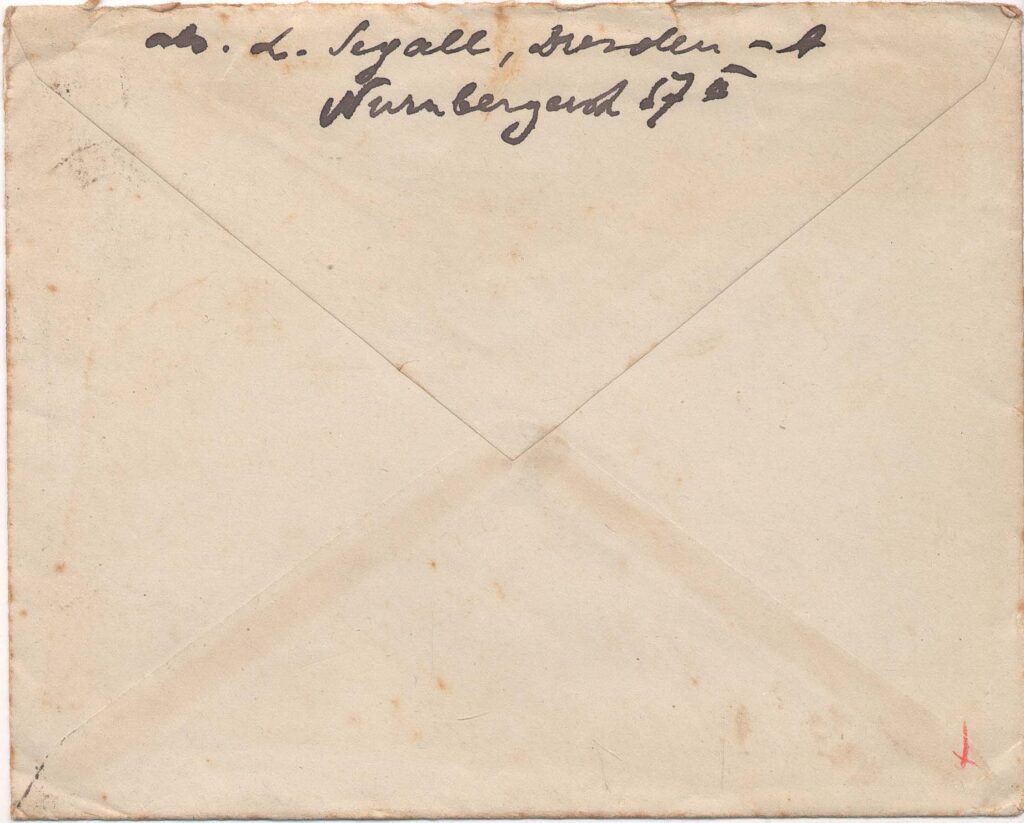 abs. L. Segall, Dresden - A
Nurnbergerstr 57 III